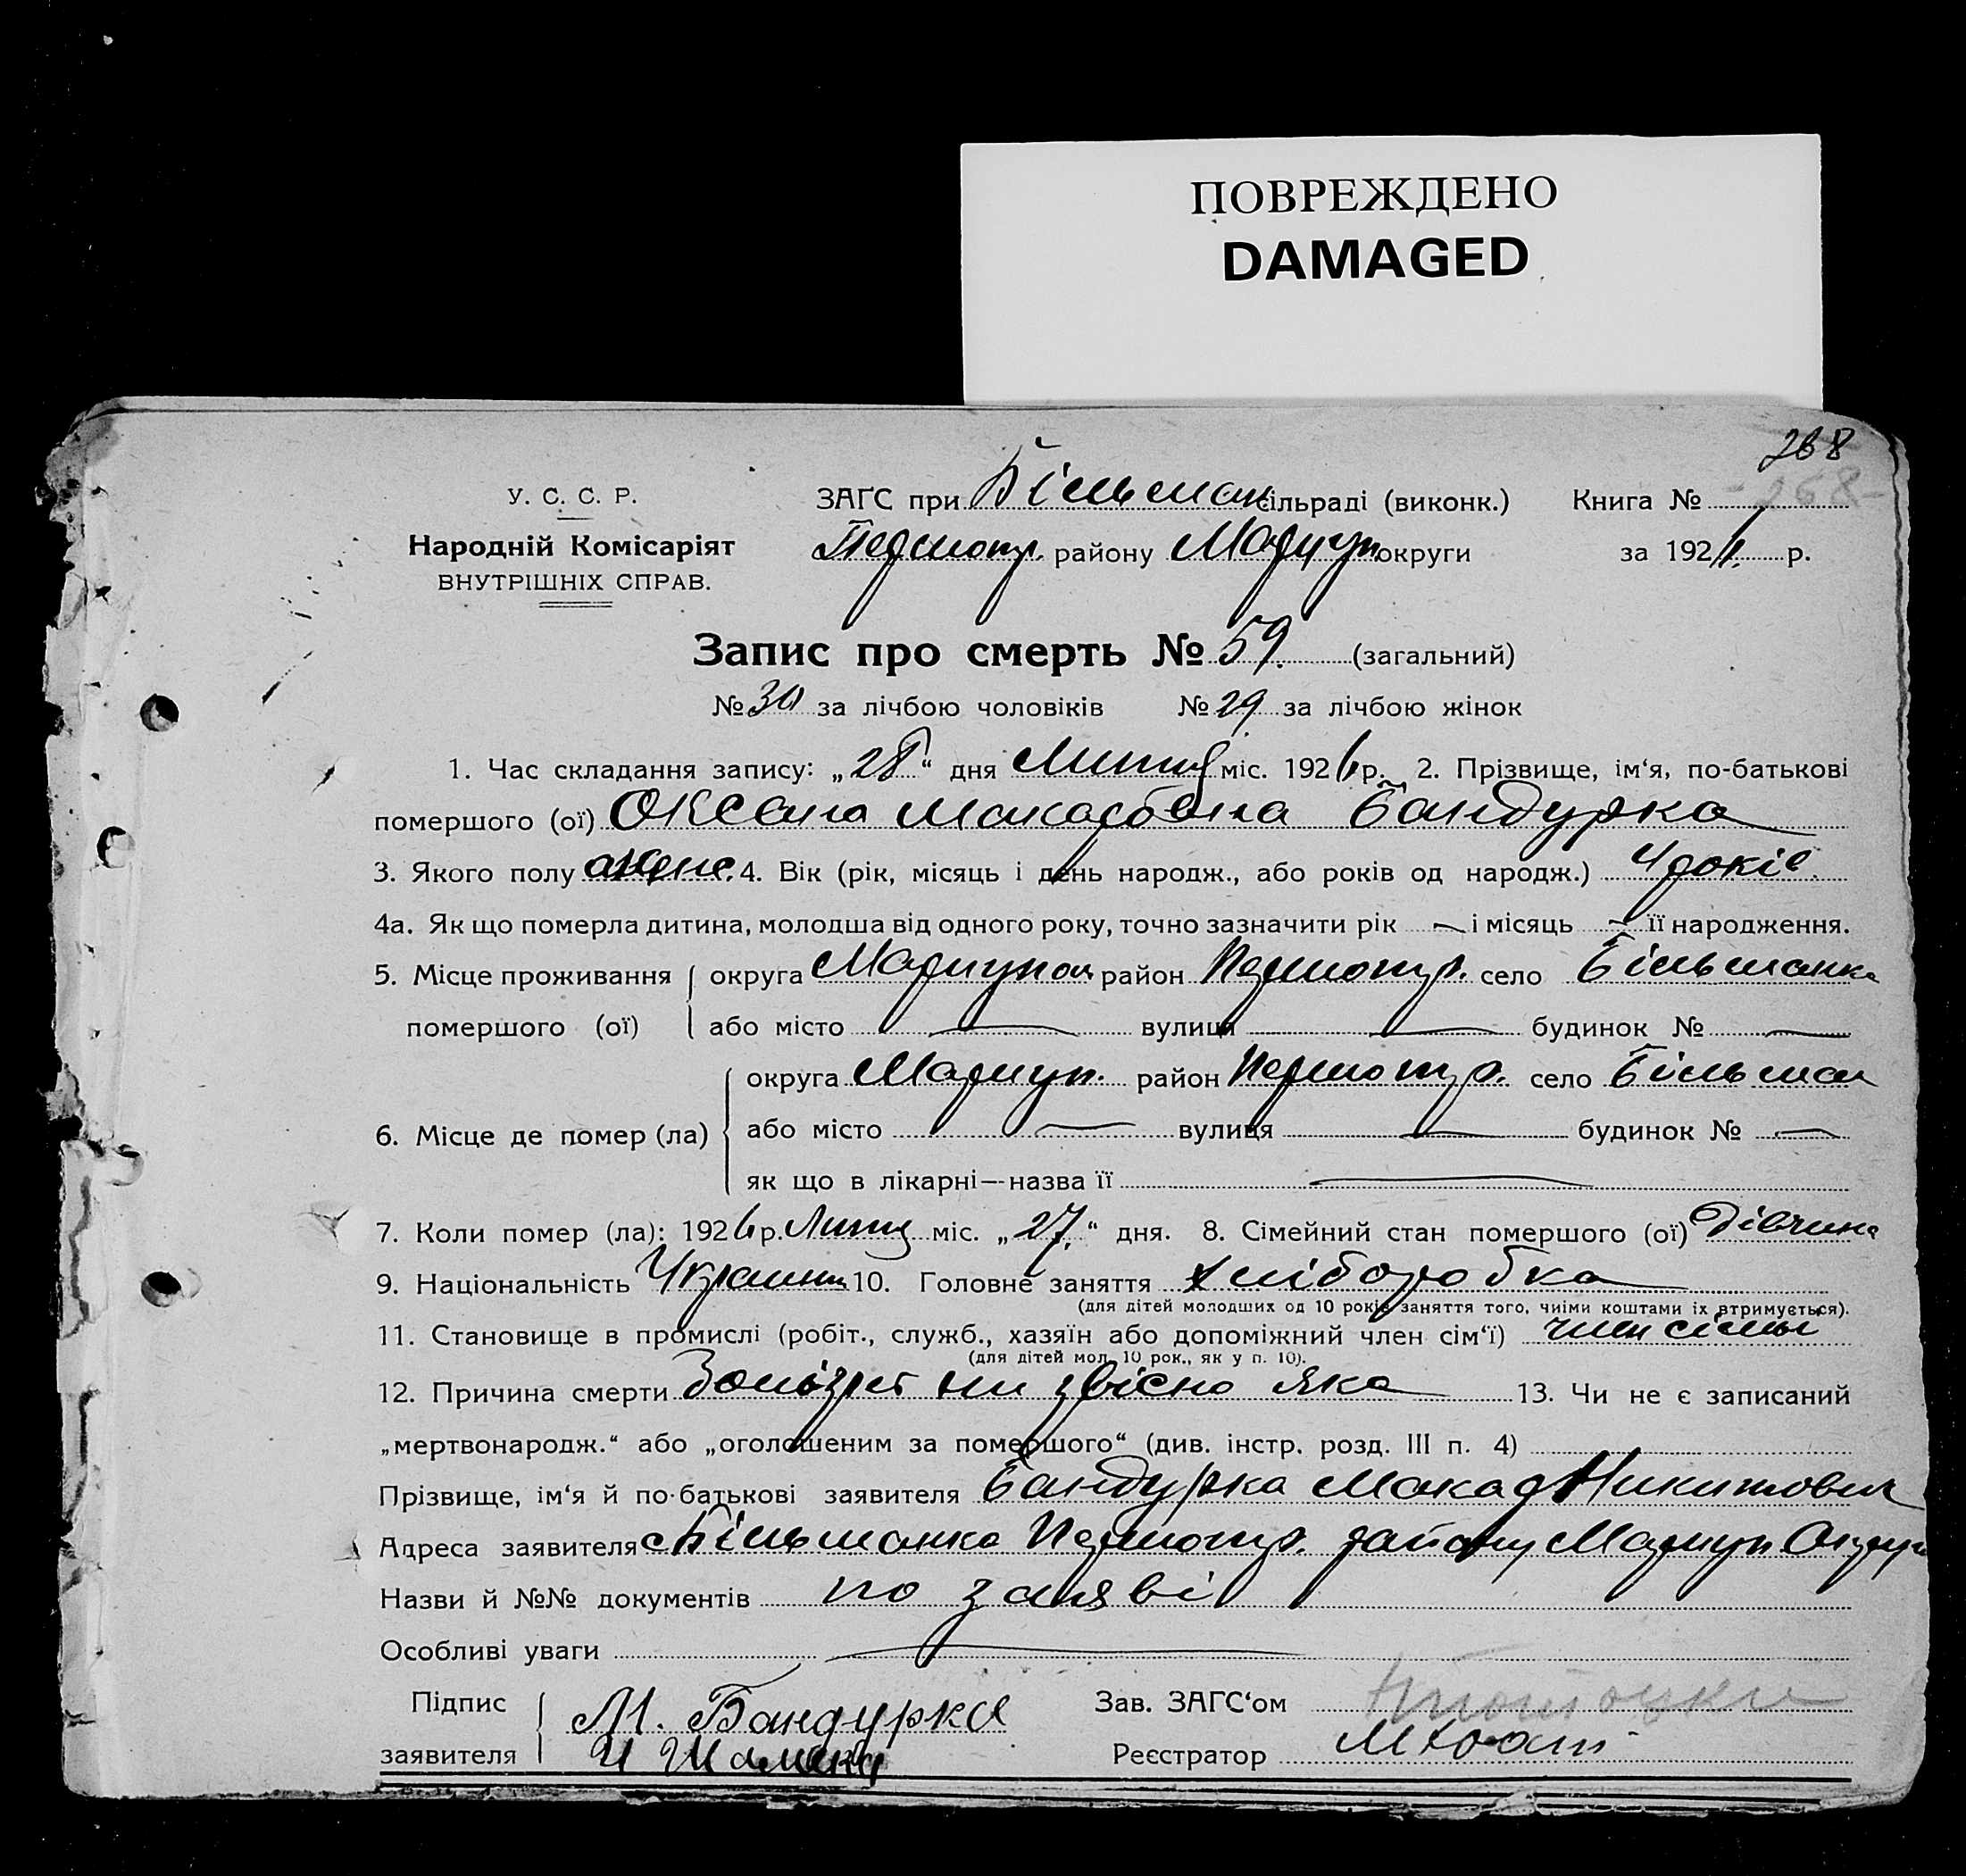 ПОВРЕЖДЕНО
DAMAGED
268
У. С. С. Р.
ЗАҐС при Більман сільраді (виконк.) Книга № -268-
Народній Комісаріят
Першотр. району Маріуп округи за 1926 р.
ВНУТРІШНІХ СПРАВ.
Запис про смерть № 59. (загальний)
№ 30 за лічбою чоловіків № 29 за лічбою жінок
1. Час складання запису: „28“ дня Липця міс. 1926 р. 2. Прізвище, ім‘я, по-батькові
помершого (ої) Оксана Макаровна Бандурка
3. Якого полу 4. Вік (рік, місяць і день народж., або років од народж.) 4 років.
4а. Як що померла дитина, молодша від одного року, точно зазначити рік — і місяць — її народження.
5. Місце проживання округа Маріупол район Першотр. село Більманка
помершого (ої) або місто — вулиця — будинок № —
округа Маріуп. район Першотр. село Більман
6. Місце де помер (ла) або місто — вулиця — будинок № —
як що в лікарні—назва її —
7. Коли помер (ла): 1926 р. Липц міс. „27.“ дня. 8. Сімейний стан помершого (ої) Дівчина
9. Національність 10. Головне заняття хліборобка
(для дітей молодших од 10 років заняття того, чиїми коштами їх втримується).
11. Становище в промислі (робіт., служб., хазяїн або допоміжний член сім‘ї) член сімьї
(для дітей мол. 10 рок., як у п. 10).
12. Причина смерти ни звісно яка 13. Чи не є записаний
„мертвонародж.“ або „оголошеним за помершого“ (див. інстр. розд. III п. 4)
Прізвище, ім‘я й по-батькові заявителя Бандурка Макар Никитович
Адреса заявителя с Більманка Першотр. району Маріуп Округи
Назви й №№ документів по заяві
Особливі уваги —
Підпис М. Бандурка Зав. ЗАҐС‘ом
заявителя Реєстратор